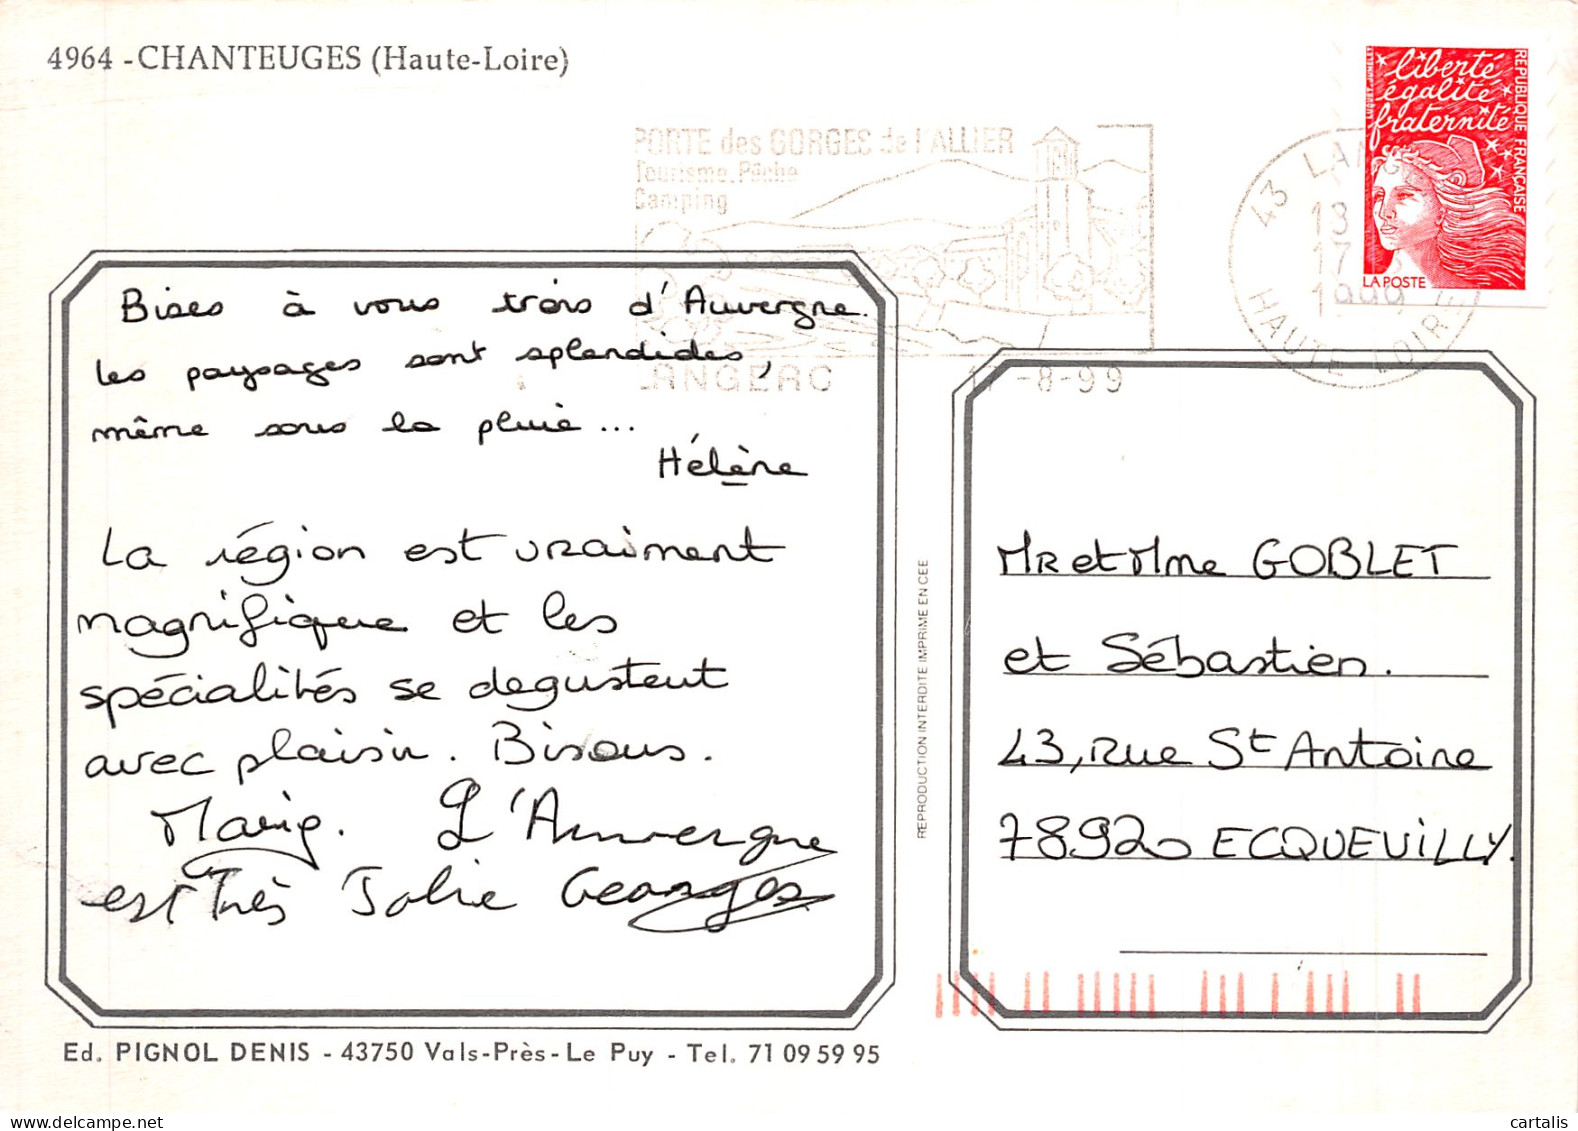 4964 - CHANTEUGES (Haute-Loire)
PORTE des GORGES de l'ALLIER
Tourisme. Pêche
Camping
LANGEAC 17-8-99
43 LANGEAC
13 H
17 - 8
1999
HAUTE LOIRE
liberté
égalité
fraternité
REPUBLIQUE FRANÇAISE
LUQUET-JUMELET
LA POSTE
Bises à vous trois d'Auvergne.
Les paysages sont splendides,
même sous la pluie...
Hélène
La région est vraiment
magnifique et les
spécialités se degustent
avec plaisir. Bisous.
L'Auvergne
est Très Jolie Georges
REPRODUCTION INTERDITE IMPRIME EN CEE
MR et Mme GOBLET
et Sébastien.
43, Rue St Antoine
78920 ECQUEVILLY.
Ed. PIGNOL DENIS - 43750 Vals-Près-Le Puy - Tel. 71 09 59 95
cartalis